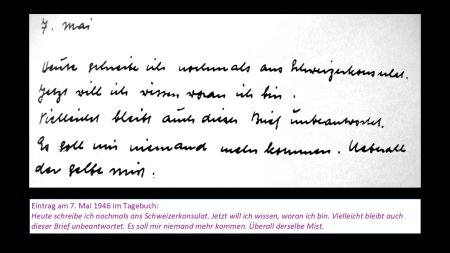 7. Mai
Heute schreibe ich nochmals ans Schweizerkonsulat.
Jetzt will ich wissen woran ich bin.
Vielleicht bleibt auch dieser Brief unbeantwortet.
Es soll mir niemand mehr kommen. Ueberall
der selbe Mist.
Eintrag am 7. Mai 1946 im Tagebuch:
Heute schreibe ich nochmals ans Schweizerkonsulat. Jetzt will ich wissen, woran ich bin. Vielleicht bleibt auch
dieser Brief unbeantwortet. Es soll mir niemand mehr kommen. Überall derselbe Mist.